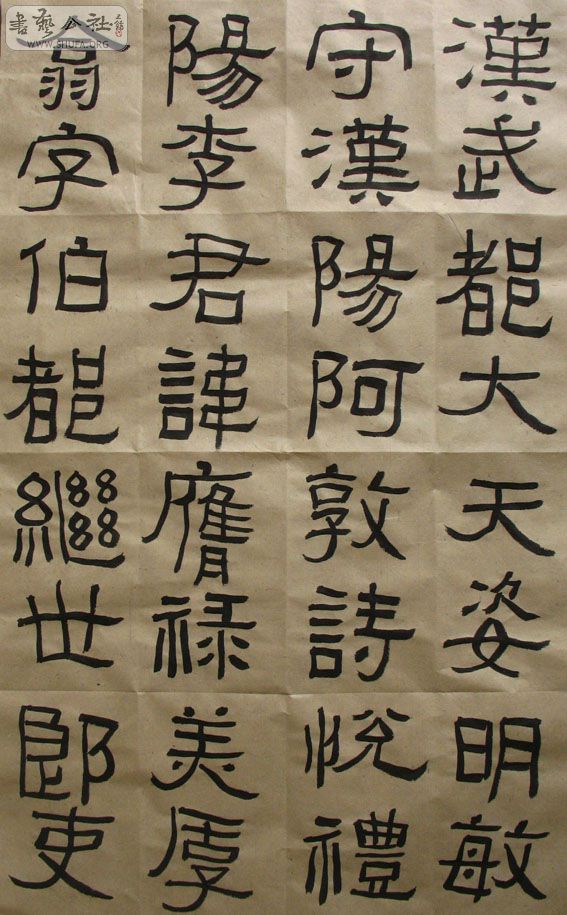 漢武都大天姿明敏
守漢陽阿敦詩悅禮
陽李君諱膺祿美厚
翕字伯都繼世郎吏
書藝公社
WWW.SHUFA.ORG